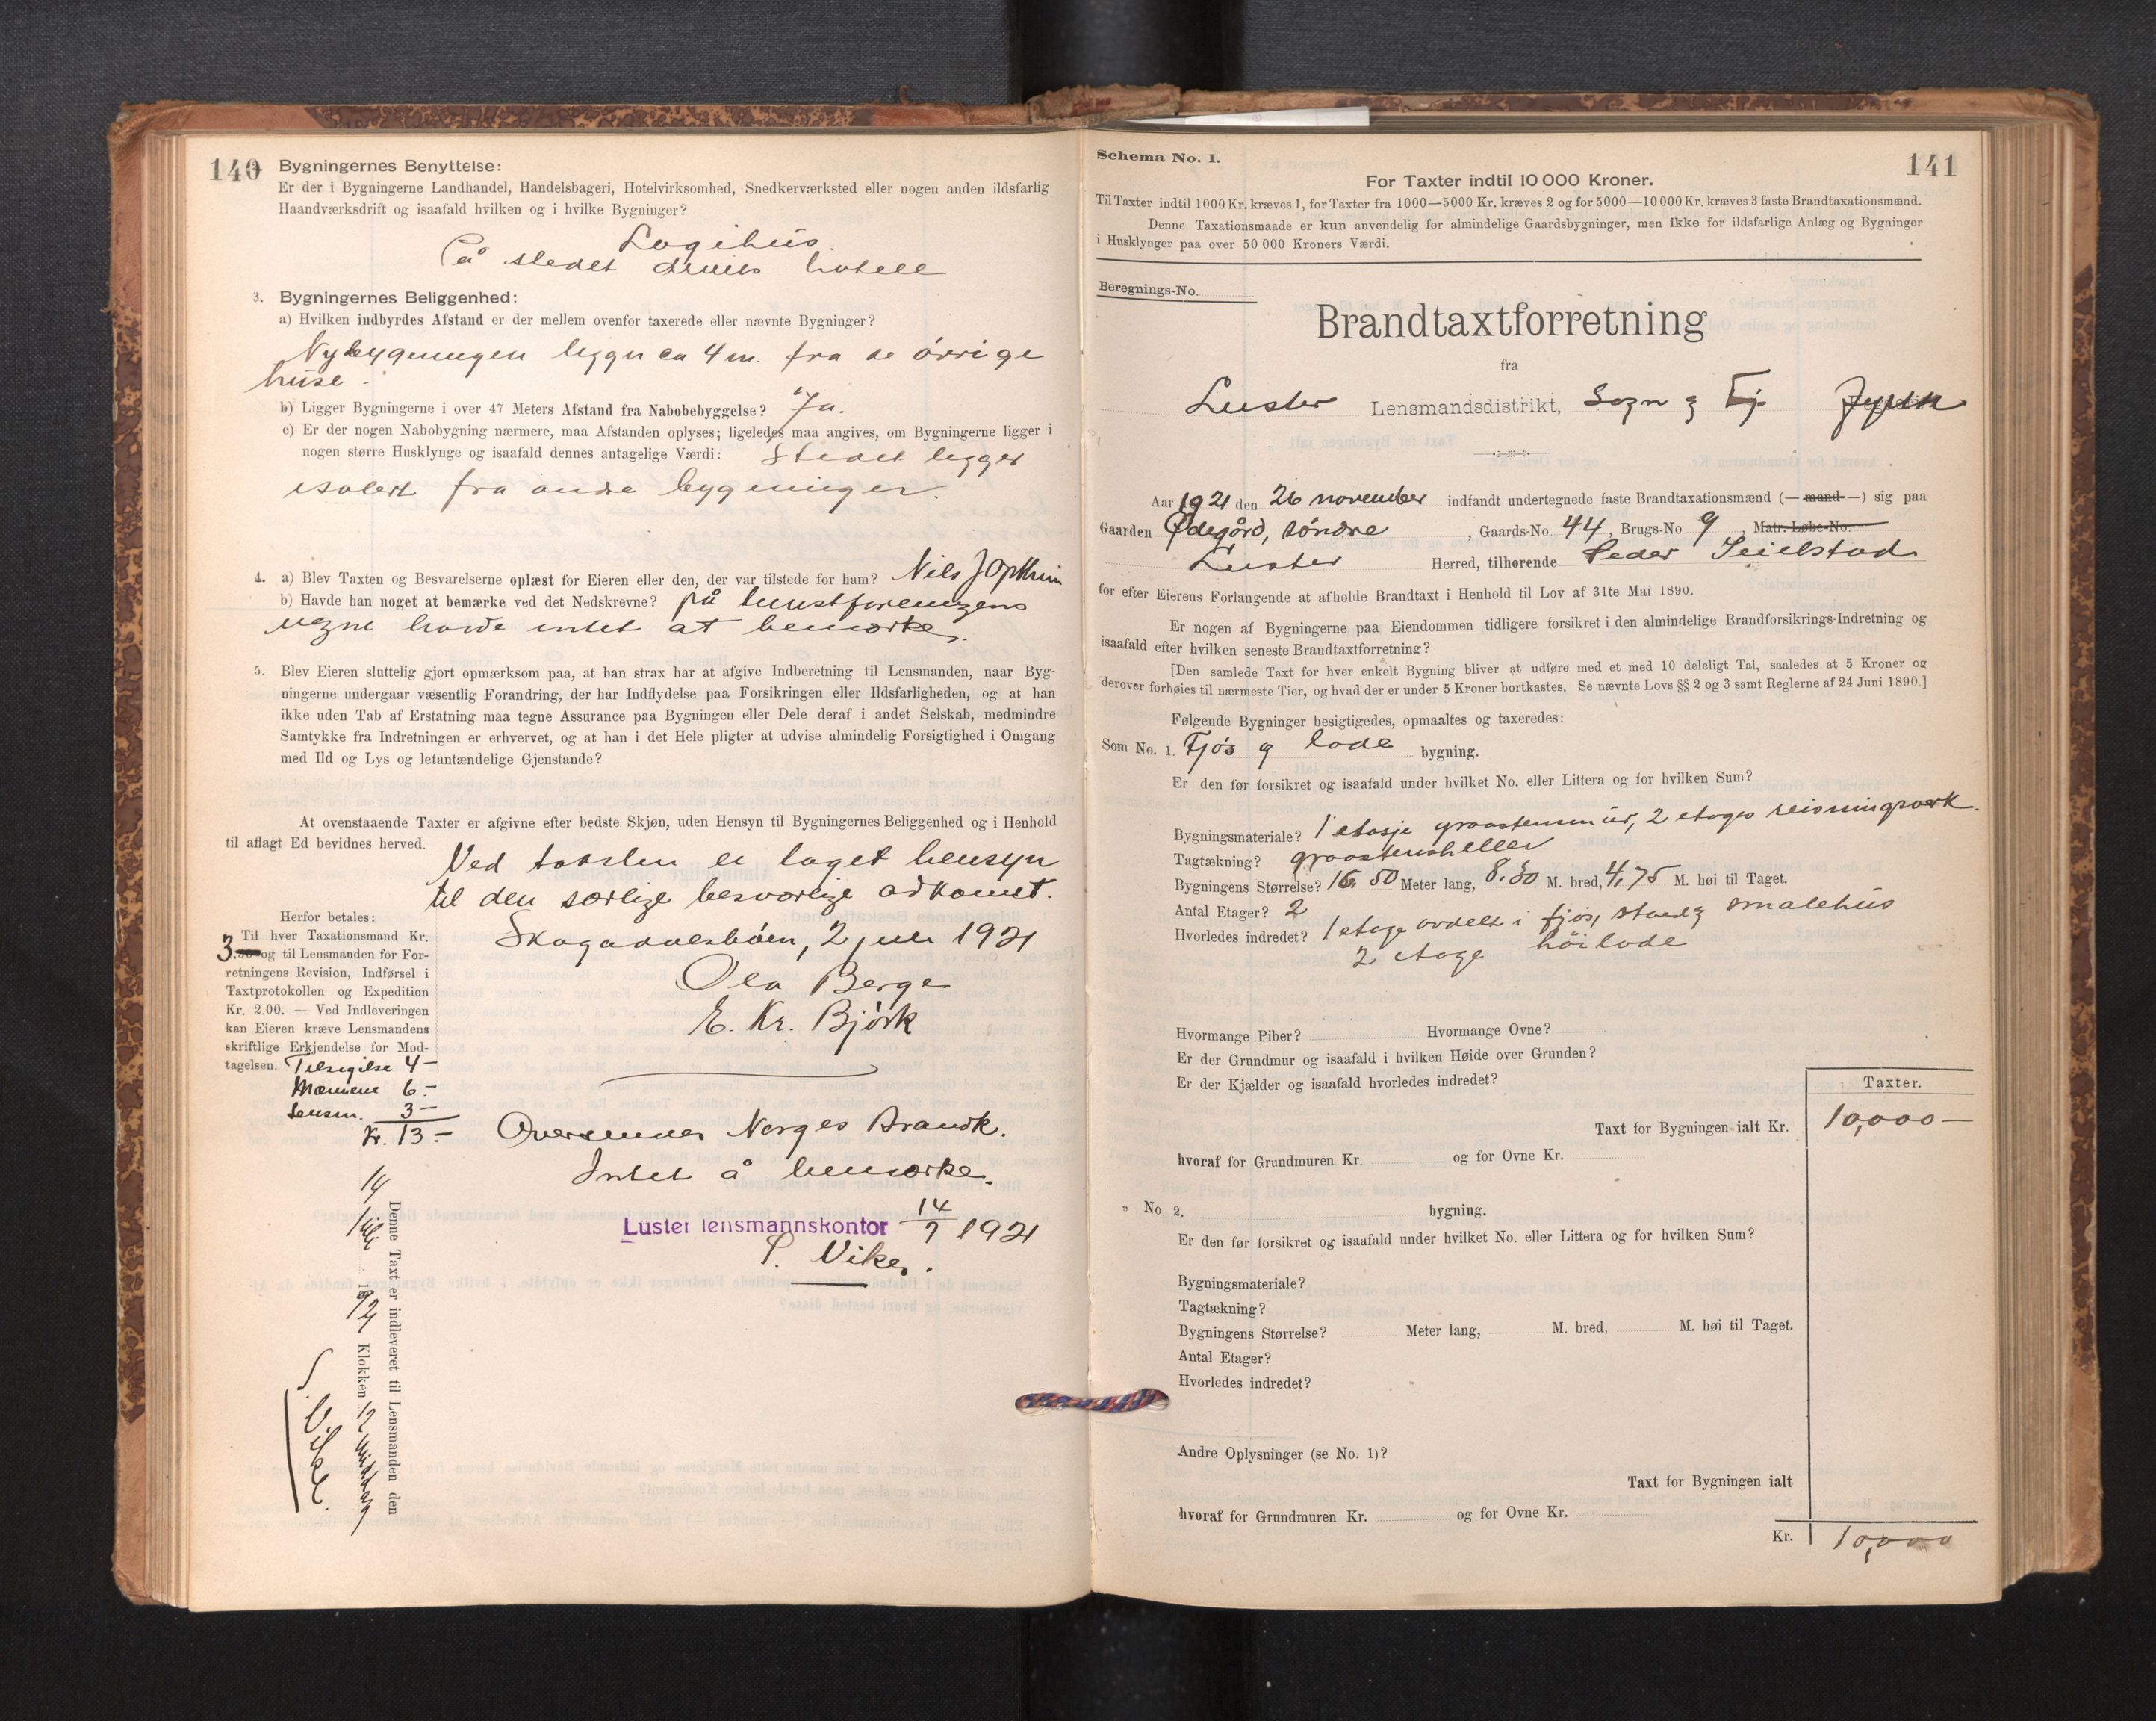 140
Bygningernes Benyttelse:
Er der i Bygningerne Landhandel, Handelsbageri, Hotelvirksomhed, Snedkerværksted eller nogen anden ildsfarlig
Haandværksdrift og isaafald hvilken og i hvilke Bygninger?
Logihus.
På stedet drives hotell
3. Bygningernes Beliggenhed:
a) Hvilken indbyrdes Afstand er der mellem ovenfor taxerede eller nævnte Bygninger?
Nybygningen ligger ca 4 m. fra de övrige
huse.
b) Ligger Bygningerne i over 47 Meters Afstand fra Nabobebyggelse? Ja.
c) Er der nogen Nabobygning nærmere, maa Afstanden oplyses; ligeledes maa angives, om Bygningerne ligger i
nogen større Husklynge og isaafald dennes antagelige Værdi: Stedet ligger
isolert fra andre bygninger.
4. a) Blev Taxten og Besvarelserne oplæst for Eieren eller den, der var tilstede for ham? Nils J Optheim
b) Havde han noget at bemærke ved det Nedskrevne? på turistforeningens
vegne havde intet at bemærke.
5. Blev Eieren sluttelig gjort opmærksom paa, at han strax har at afgive Indberetning til Lensmanden, naar Byg-
ningerne undergaar væsentlig Forandring, der har Indflydelse paa Forsikringen eller Ildsfarligheden, og at han
ikke uden Tab af Erstatning maa tegne Assurance paa Bygningen eller Dele deraf i andet Selskab, medmindre
Samtykke fra Indretningen er erhvervet, og at han i det Hele pligter at udvise almindelig Forsigtighed i Omgang
med Ild og Lys og letantændelige Gjenstande?
At ovenstaaende Taxter er afgivne efter bedste Skjøn, uden Hensyn til Bygningernes Beliggenhed og i Henhold
til aflagt Ed bevidnes herved.
Ved taksten er taget hensyn
til den særlige besværlige adkomst.
Skogadalsböen, 2 juli 1921
Ola Berge
E. Kr. Bjørk
Herfor betales:
Til hver Taxationsmand Kr.
3.50 og til Lensmanden for For-
retningens Revision, Indførsel i
Taxtprotokollen og Expedition
Kr. 2.00. — Ved Indleveringen
kan Eieren kræve Lensmandens
skriftlige Erkjendelse for Mod-
tagelsen.
Tilsigelse 4 —
Mænnene 6 —
Lensm. 3 —
Kr. 13 —
Oversendes Norges Brandk.
Intet å bemærke.
Luster lensmannskontor 14/7 1921
S. Viken.
Denne Taxt er indleveret til Lensmanden den
14 juli 1921 Klokken 12 middag
S. Viken
Schema No. 1.
141
For Taxter indtil 10 000 Kroner.
Til Taxter indtil 1000 Kr. kræves 1, for Taxter fra 1000—5000 Kr. kræves 2 og for 5000—10 000 Kr. kræves 3 faste Brandtaxationsmænd.
Denne Taxationsmaade er kun anvendelig for almindelige Gaardsbygninger, men ikke for ildsfarlige Anlæg og Bygninger
i Husklynger paa over 50 000 Kroners Værdi.
Beregnings-No.
Brandtaxtforretning
fra
Luster Lensmandsdistrikt, Sogn og Fj. Fylke
Aar 1921 den 26 november indfandt undertegnede faste Brandtaxationsmænd (— mand —) sig paa
Gaarden Ødegård, söndre, Gaards-No. 44, Brugs-No 9, Matr. Løbe-No.
Luster Herred, tilhørende Peder Seielstad
for efter Eierens Forlangende at afholde Brandtaxt i Henhold til Lov af 31te Mai 1890.
Er nogen af Bygningerne paa Eiendommen tidligere forsikret i den almindelige Brandforsikrings-Indretning og
isaafald efter hvilken seneste Brandtaxtforretning?
[Den samlede Taxt for hver enkelt Bygning bliver at udføre med et med 10 deleligt Tal, saaledes at 5 Kroner og
derover forhøies til nærmeste Tier, og hvad der er under 5 Kroner bortkastes. Se nævnte Lovs §§ 2 og 3 samt Reglerne af 24 Juni 1890.]
Følgende Bygninger besigtigedes, opmaaltes og taxeredes:
Som No. 1. Fjös og lade bygning.
Er den før forsikret og isaafald under hvilket No. eller Littera og for hvilken Sum?
Bygningsmateriale? 1 etasje graastensmur, 2 etages reisningsverk.
Tagtækning? graastensheller
Bygningens Størrelse? 16.50 Meter lang, 8.30 M. bred, 4.75 M. høi til Taget.
Antal Etager? 2
Hvorledes indredet? 1 etage avdelt i fjös, stald og smalehus
2 etage höilade
Hvormange Piber? Hvormange Ovne?
Er der Grundmur og isaafald i hvilken Høide over Grunden?
Er der Kjælder og isaafald hvorledes indredet?
Taxter.
Taxt for Bygningen ialt Kr. 10,000 —
hvoraf for Grundmuren Kr. og for Ovne Kr.
" No. 2. bygning.
Er den før forsikret og isaafald under hvilket No. eller Littera og for hvilken Sum?
Bygningsmateriale?
Tagtækning?
Bygningens Størrelse? Meter lang, M. bred, M. høi til Taget.
Antal Etager?
Hvorledes indredet?
Andre Oplysninger (se No. 1)?
Taxt for Bygningen ialt
hvoraf for Grundmuren Kr. og for Ovne Kr.
Kr. 10,000